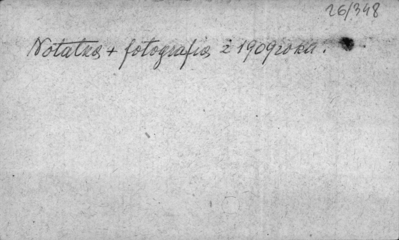 26/348
Notatka + fotografia z 1909 roku.